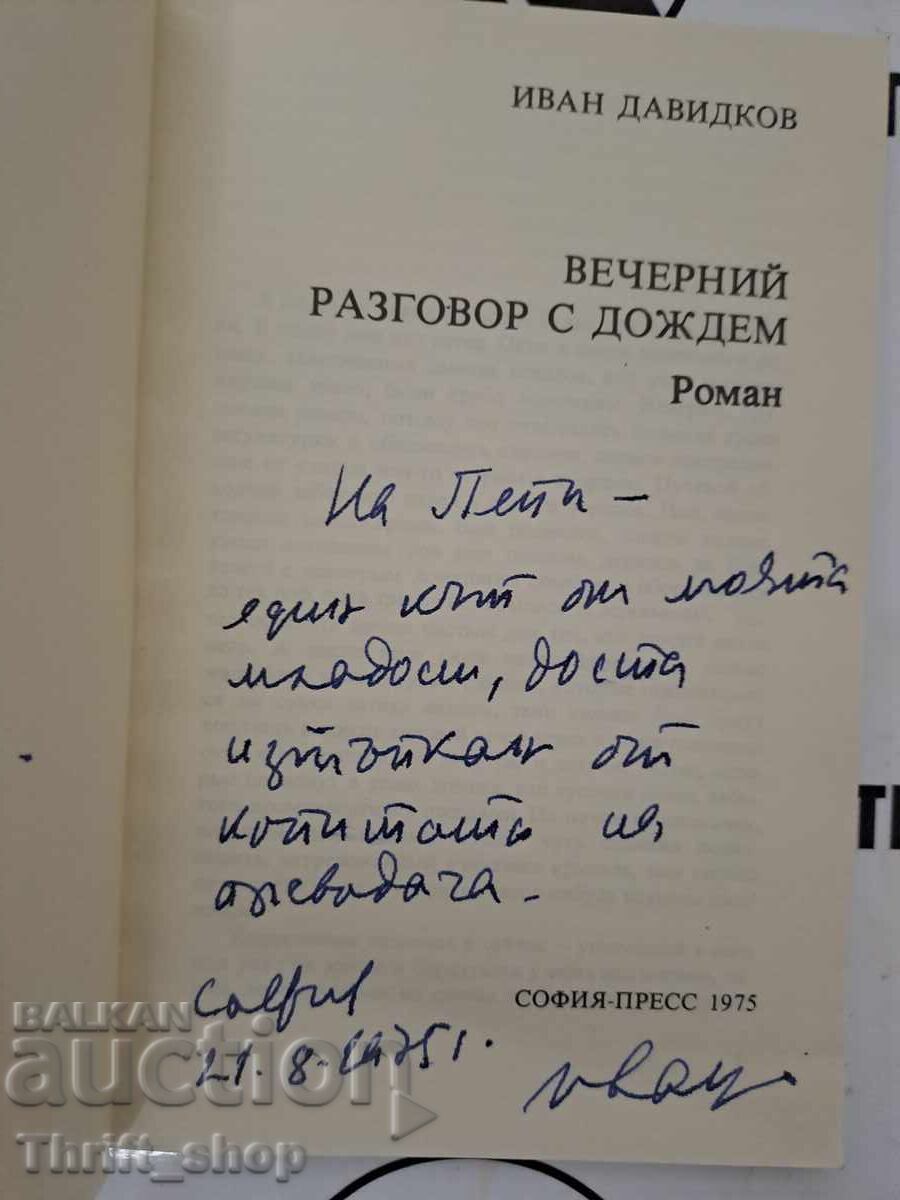 ИВАН ДАВИДКОВ
ВЕЧЕРНИЙ
РАЗГОВОР С ДОЖДЕМ
Роман
На Пепи –
един кът от моята
младост, доста
изтъпкан от
копитата на
преводача.
СОФИЯ-ПРЕСС 1975
София
21.8.1975 г.
Иван
BALKAN
auction
Thrift_shop